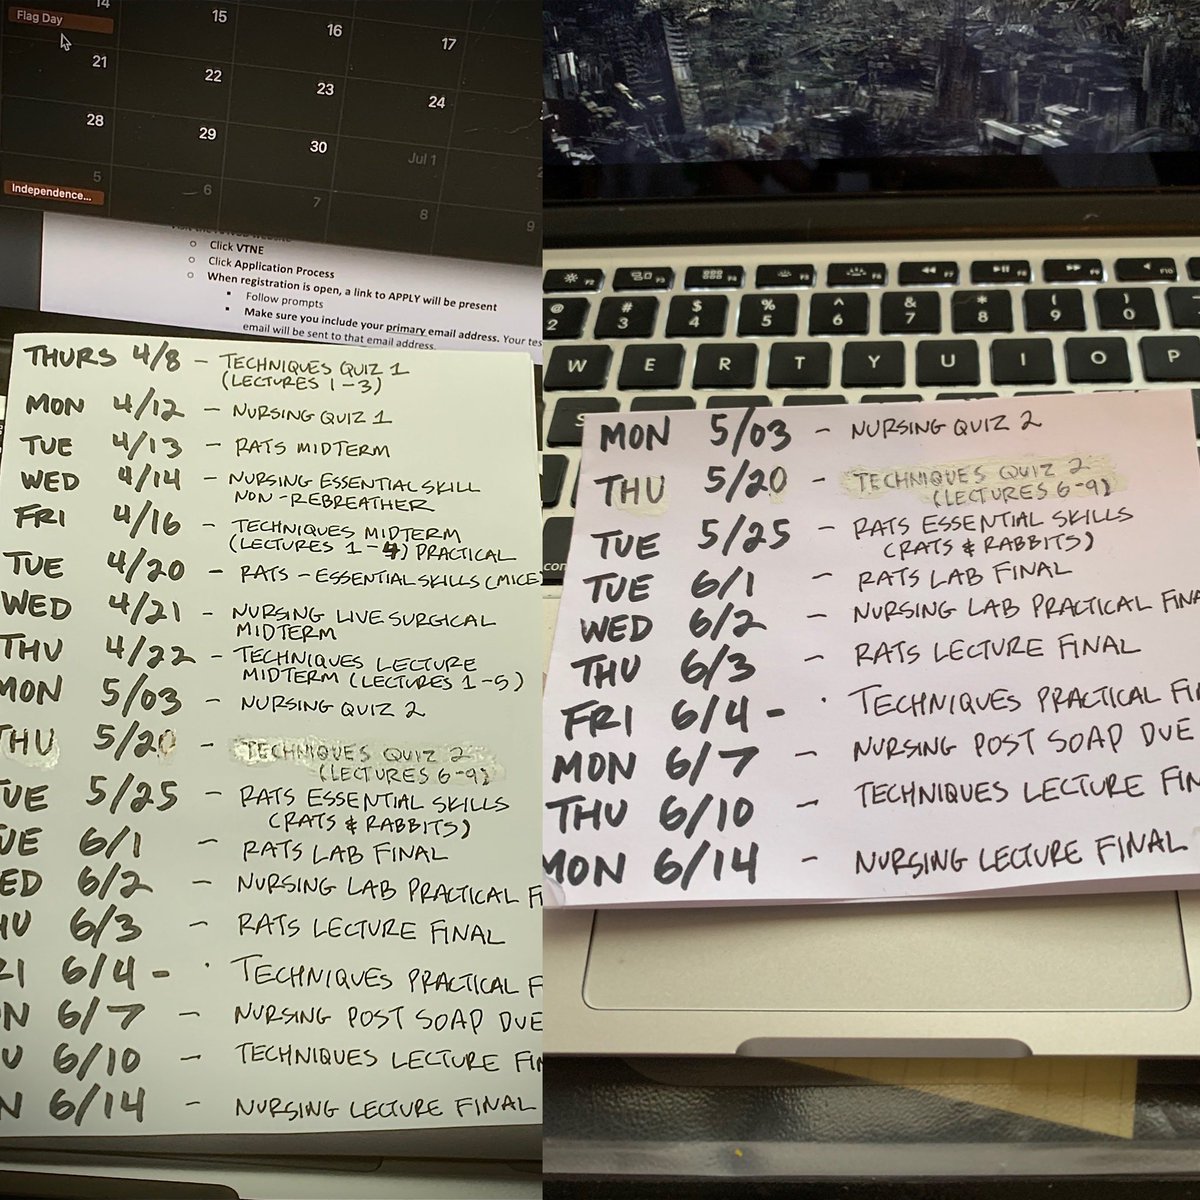 14
Flag Day
15
16
17
21
22
23
24
28
29
30
Jul 1
5
Independence...
6
7
8
9
Click VTNE
Click Application Process
When registration is open, a link to APPLY will be present
Follow prompts
Make sure you include your primary email address. Your tes
email will be sent to that email address.
THURS 4/8 - TECHNIQUES QUIZ 1
(LECTURES 1-3)
MON 4/12 - NURSING QUIZ 1
TUE 4/13 - RATS MIDTERM
WED 4/14 - NURSING ESSENTIAL SKILL
NON-REBREATHER
FRI 4/16 - TECHNIQUES MIDTERM
(LECTURES 1-4) PRACTICAL
TUE 4/20 - RATS - ESSENTIAL SKILLS (MICE)
WED 4/21 - NURSING LIVE SURGICAL
MIDTERM
THU 4/22 - TECHNIQUES LECTURE
MIDTERM (LECTURES 1-5)
MON 5/03 - NURSING QUIZ 2
THU 5/20 - TECHNIQUES QUIZ 2
(LECTURES 6-9)
TUE 5/25 - RATS ESSENTIAL SKILLS
(RATS & RABBITS)
UE 6/1 RATS LAB FINAL
ED 6/2 - NURSING LAB PRACTICAL F
HU 6/3 - RATS LECTURE FINAL
RI 6/4 - TECHNIQUES PRACTICAL F
N 6/7 - NURSING POST SOAP DUE
U 6/10 - TECHNIQUES LECTURE FIN
N 6/14 - NURSING LECTURE FINAL
F2 F3 F4 F5 F6 F7 F8 F9 F10
@ # $ % ^ & * ( )
2 3 4 5 6 7 8 9 0
W E R T Y U I O P
S
com
MON 5/03 - NURSING QUIZ 2
THU 5/20 - TECHNIQUES QUIZ 2
(LECTURES 6-9)
TUE 5/25 - RATS ESSENTIAL SKILLS
(RATS & RABBITS)
TUE 6/1 - RATS LAB FINAL
WED 6/2 - NURSING LAB PRACTICAL FINA
THU 6/3 - RATS LECTURE FINAL
FRI 6/4 - TECHNIQUES PRACTICAL FI
MON 6/7 - NURSING POST SOAP DUE
THU 6/10 - TECHNIQUES LECTURE FIN
MON 6/14 - NURSING LECTURE FINAL